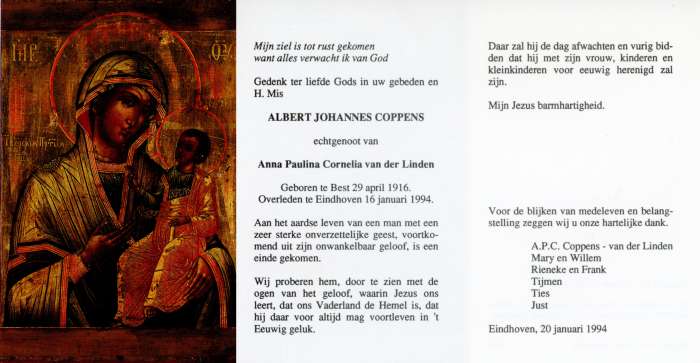 Mijn ziel is tot rust gekomen
want alles verwacht ik van God
Gedenk ter liefde Gods in uw gebeden en
H. Mis
ALBERT JOHANNES COPPENS
echtgenoot van
Anna Paulina Cornelia van der Linden
Geboren te Best 29 april 1916.
Overleden te Eindhoven 16 januari 1994.
Aan het aardse leven van een man met een
zeer sterke onverzettelijke geest, voortko-
mend uit zijn onwankelbaar geloof, is een
einde gekomen.
Wij proberen hem, door te zien met de
ogen van het geloof, waarin Jezus ons
leert, dat ons Vaderland de Hemel is, dat
hij daar voor altijd mag voortleven in 't
Eeuwig geluk.
Daar zal hij de dag afwachten en vurig bid-
den dat hij met zijn vrouw, kinderen en
kleinkinderen voor eeuwig herenigd zal
zijn.
Mijn Jezus barmhartigheid.
Voor de blijken van medeleven en belang-
stelling zeggen wij u onze hartelijke dank.
A.P.C. Coppens - van der Linden
Mary en Willem
Rieneke en Frank
Tijmen
Ties
Just
Eindhoven, 20 januari 1994